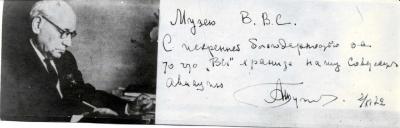 Музею В.В.С.
С искренней благодарностью за
то что „Вы" храните нашу Советскую
авиацию